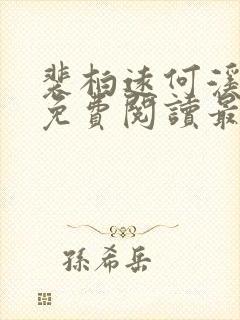 裴柏远何滢
免費閱讀最
孫希岳